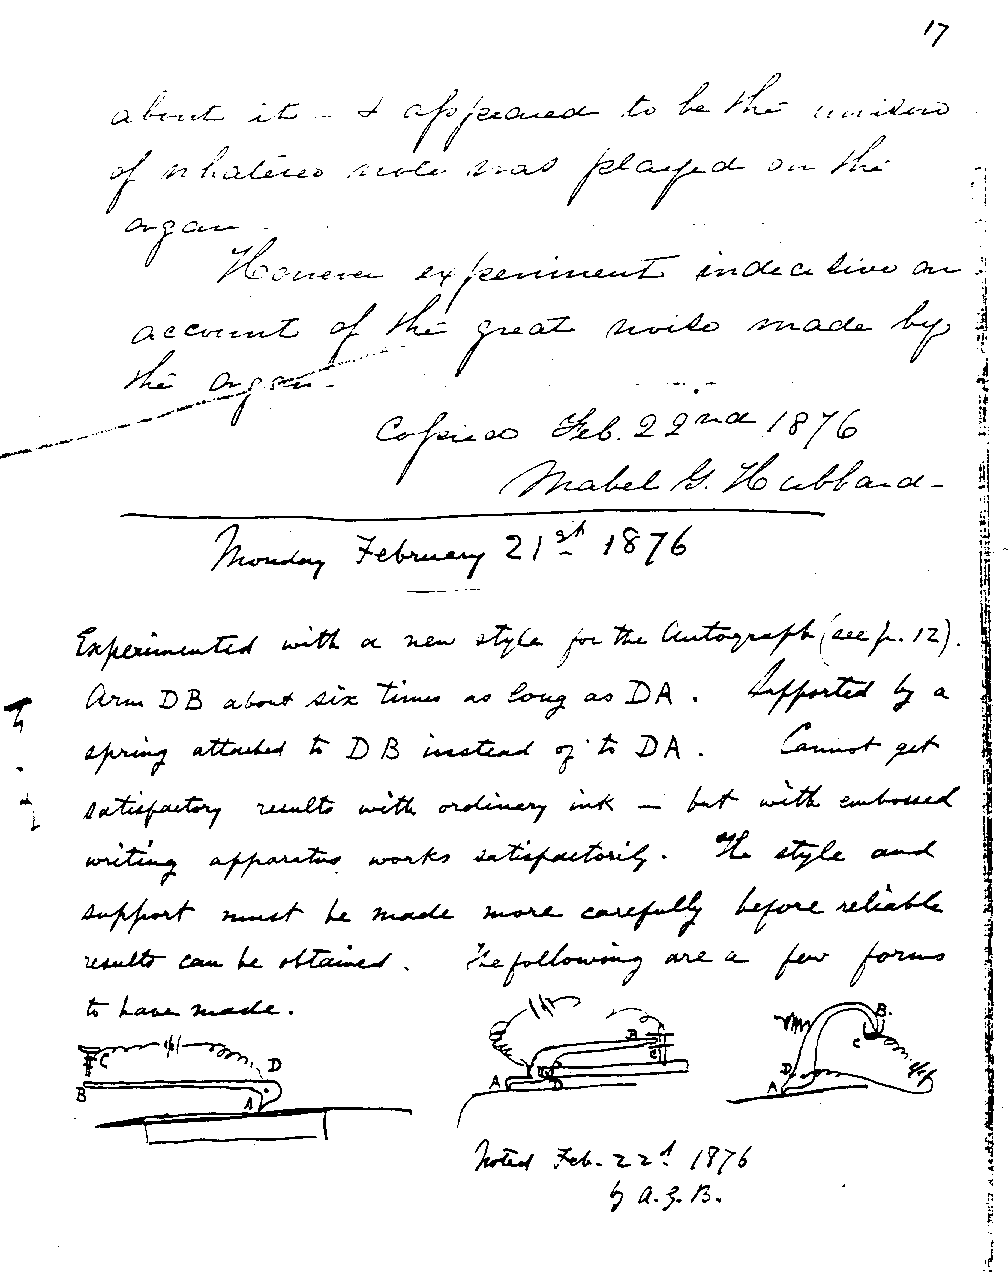 17
about it - & appeared to be the unison
of whatever note was played on the
organ.
However experiment indecisive on
account of the great noise made by
the organ.
Copied Feb. 22nd 1876
Mabel G. Hubbard -
Monday February 21st 1876
Experimented with a new style for the Autograph (see p. 12).
Arm DB about six times as long as DA. Supported by a
spring attached to DB instead of to DA. Cannot get
satisfactory results with ordinary ink — but with embossed
writing apparatus works satisfactorily. The style and
support must be made more carefully before reliable
results can be obtained. The following are a few forms
to have made.
C D
B
A
B
C
A D
B.
C
D
A
Noted Feb. 22d 1876
by A. G. B.